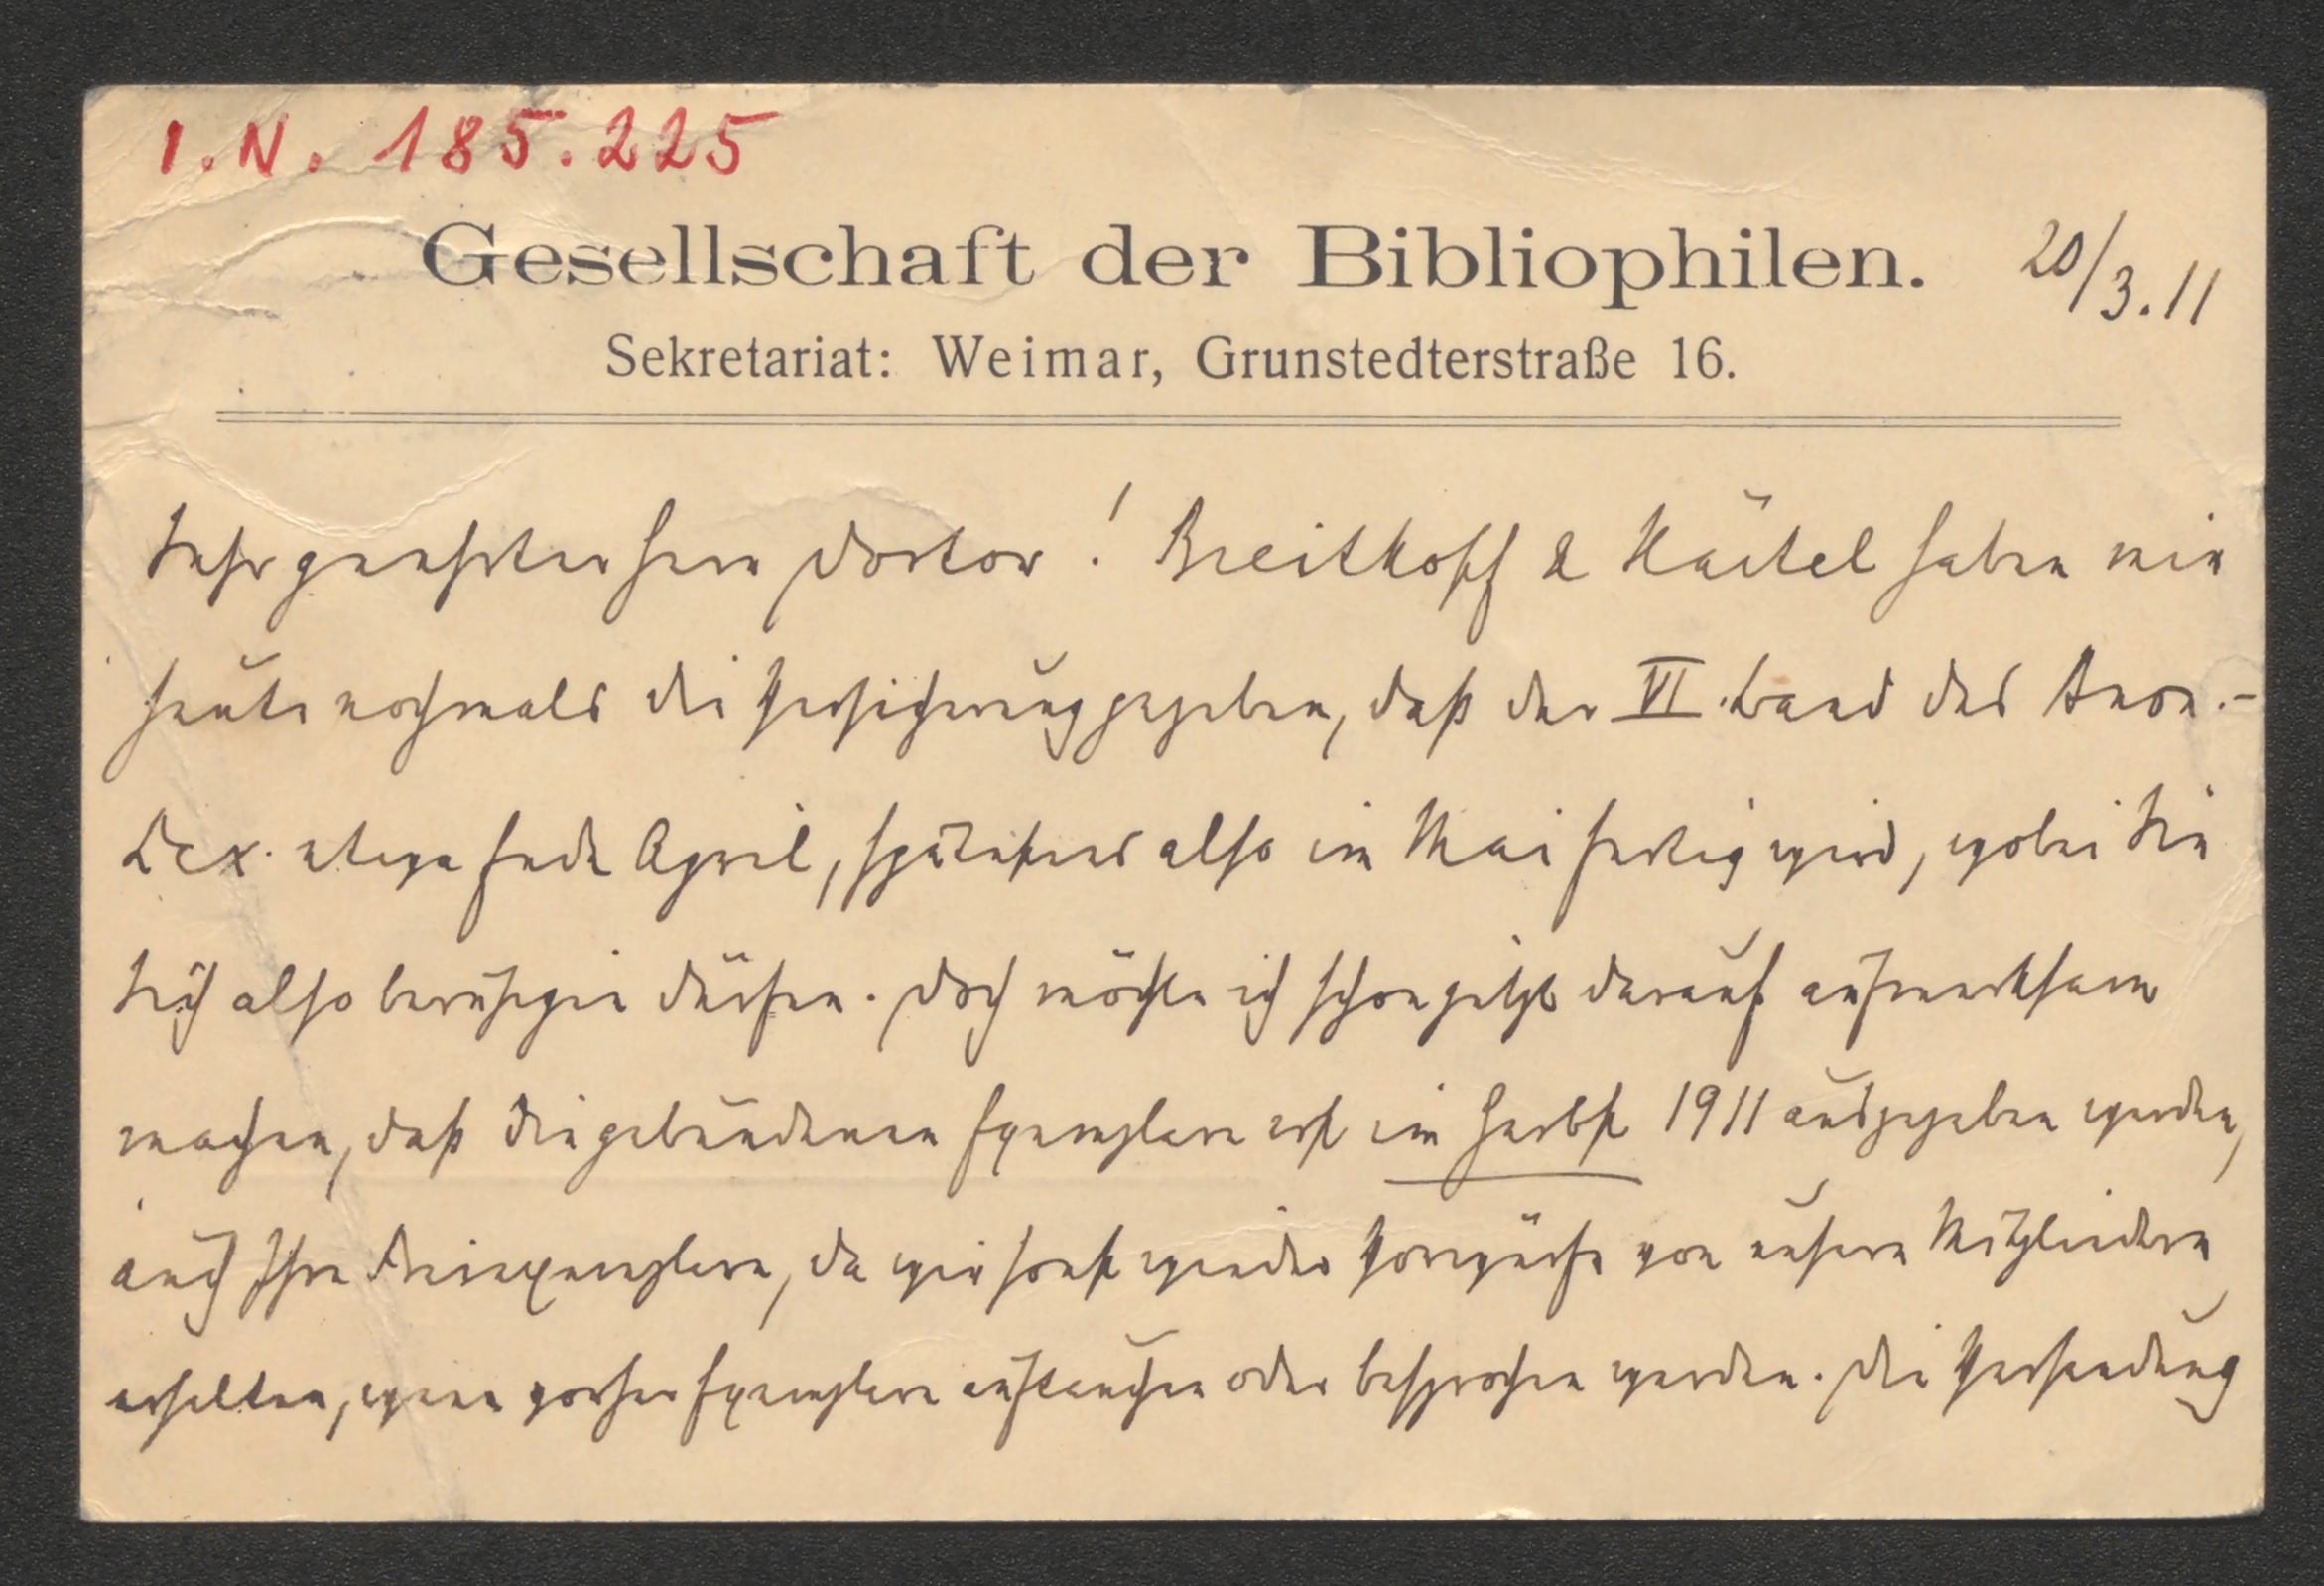 I.N. 185.225
Gesellschaft der Bibliophilen.
20/3.11
Sekretariat: Weimar, Grunstedterstraße 16.
Sehr geehrter Herr Doctor! Breitkopf & Härtel haben mir
heute nochmals die Versicherung gegeben, daß der VI. Band des Anon.-
Lex. etwa Ende April, spätestens also im Mai fertig wird, wobei Sie
Sich also beruhigen dürfen. Doch möchte ich schon jetzt darauf aufmerksam
machen, daß die gebundenen Exemplare erst im Herbst 1911 ausgegeben werden,
auch Ihre Freiexemplare, da wir sonst wieder Vorwürfe von unsern Mitgliedern
erhalten, wenn vorher Exemplare auftauchen oder besprochen werden. Die Versendung